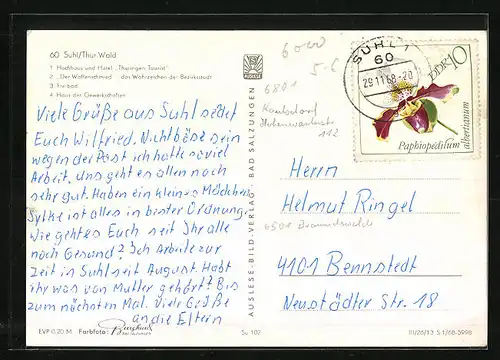 60 Suhl/Thür. Wald
1 Hochhaus und Hotel „Thüringen Tourist“
2 „Der Waffenschmied“ das Wahrzeichen der Bezirksstadt
3 Freibad
4 Haus der Gewerkschaften
Viele Grüße aus Suhl sedet
Euch Wilfried. Nicht böse sein
wegen der Post ich hatte soviel
Arbeit. Uns geht es allen noch
sehr gut. Haben ein kleines Mädchen
Sylke ist alles in bester Ordnung.
Wie geht es Euch seit Ihr alle
noch Gesund? Ich Arbeite zur
Zeit in Suhl seit August. Habt
ihr was von Mutter gehört? Bis
zum nächsten Mal. Viele Grüße
an die Eltern
EVP 0,20 M Farbfoto:
Su 102
AUSLESE
AUSLESE-BILD-VERLAG · BAD SALZUNGEN
6000
5-6
6801
112
SUHL 1
60
29.11.68-20
DDR 10
Paphiopedilum
albertianum
Herrn
Helmut Ringel
4101 Bennstedt
Neustädter Str. 18
III/26/13 S 1/68-5998